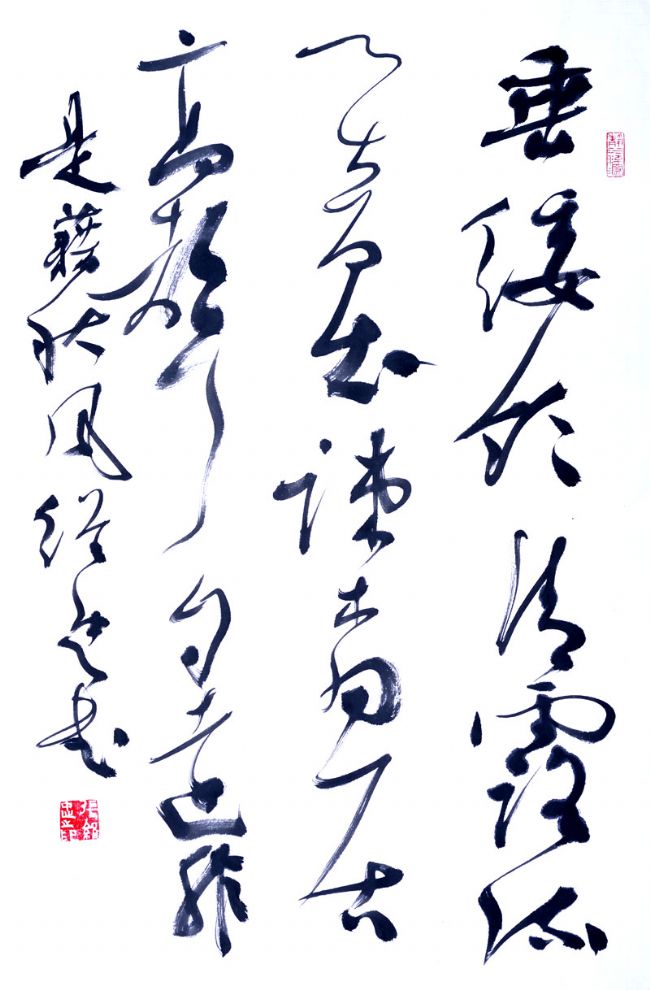 垂緌飲清露流
響出疎桐居
高聲自遠非
是藉秋風 書